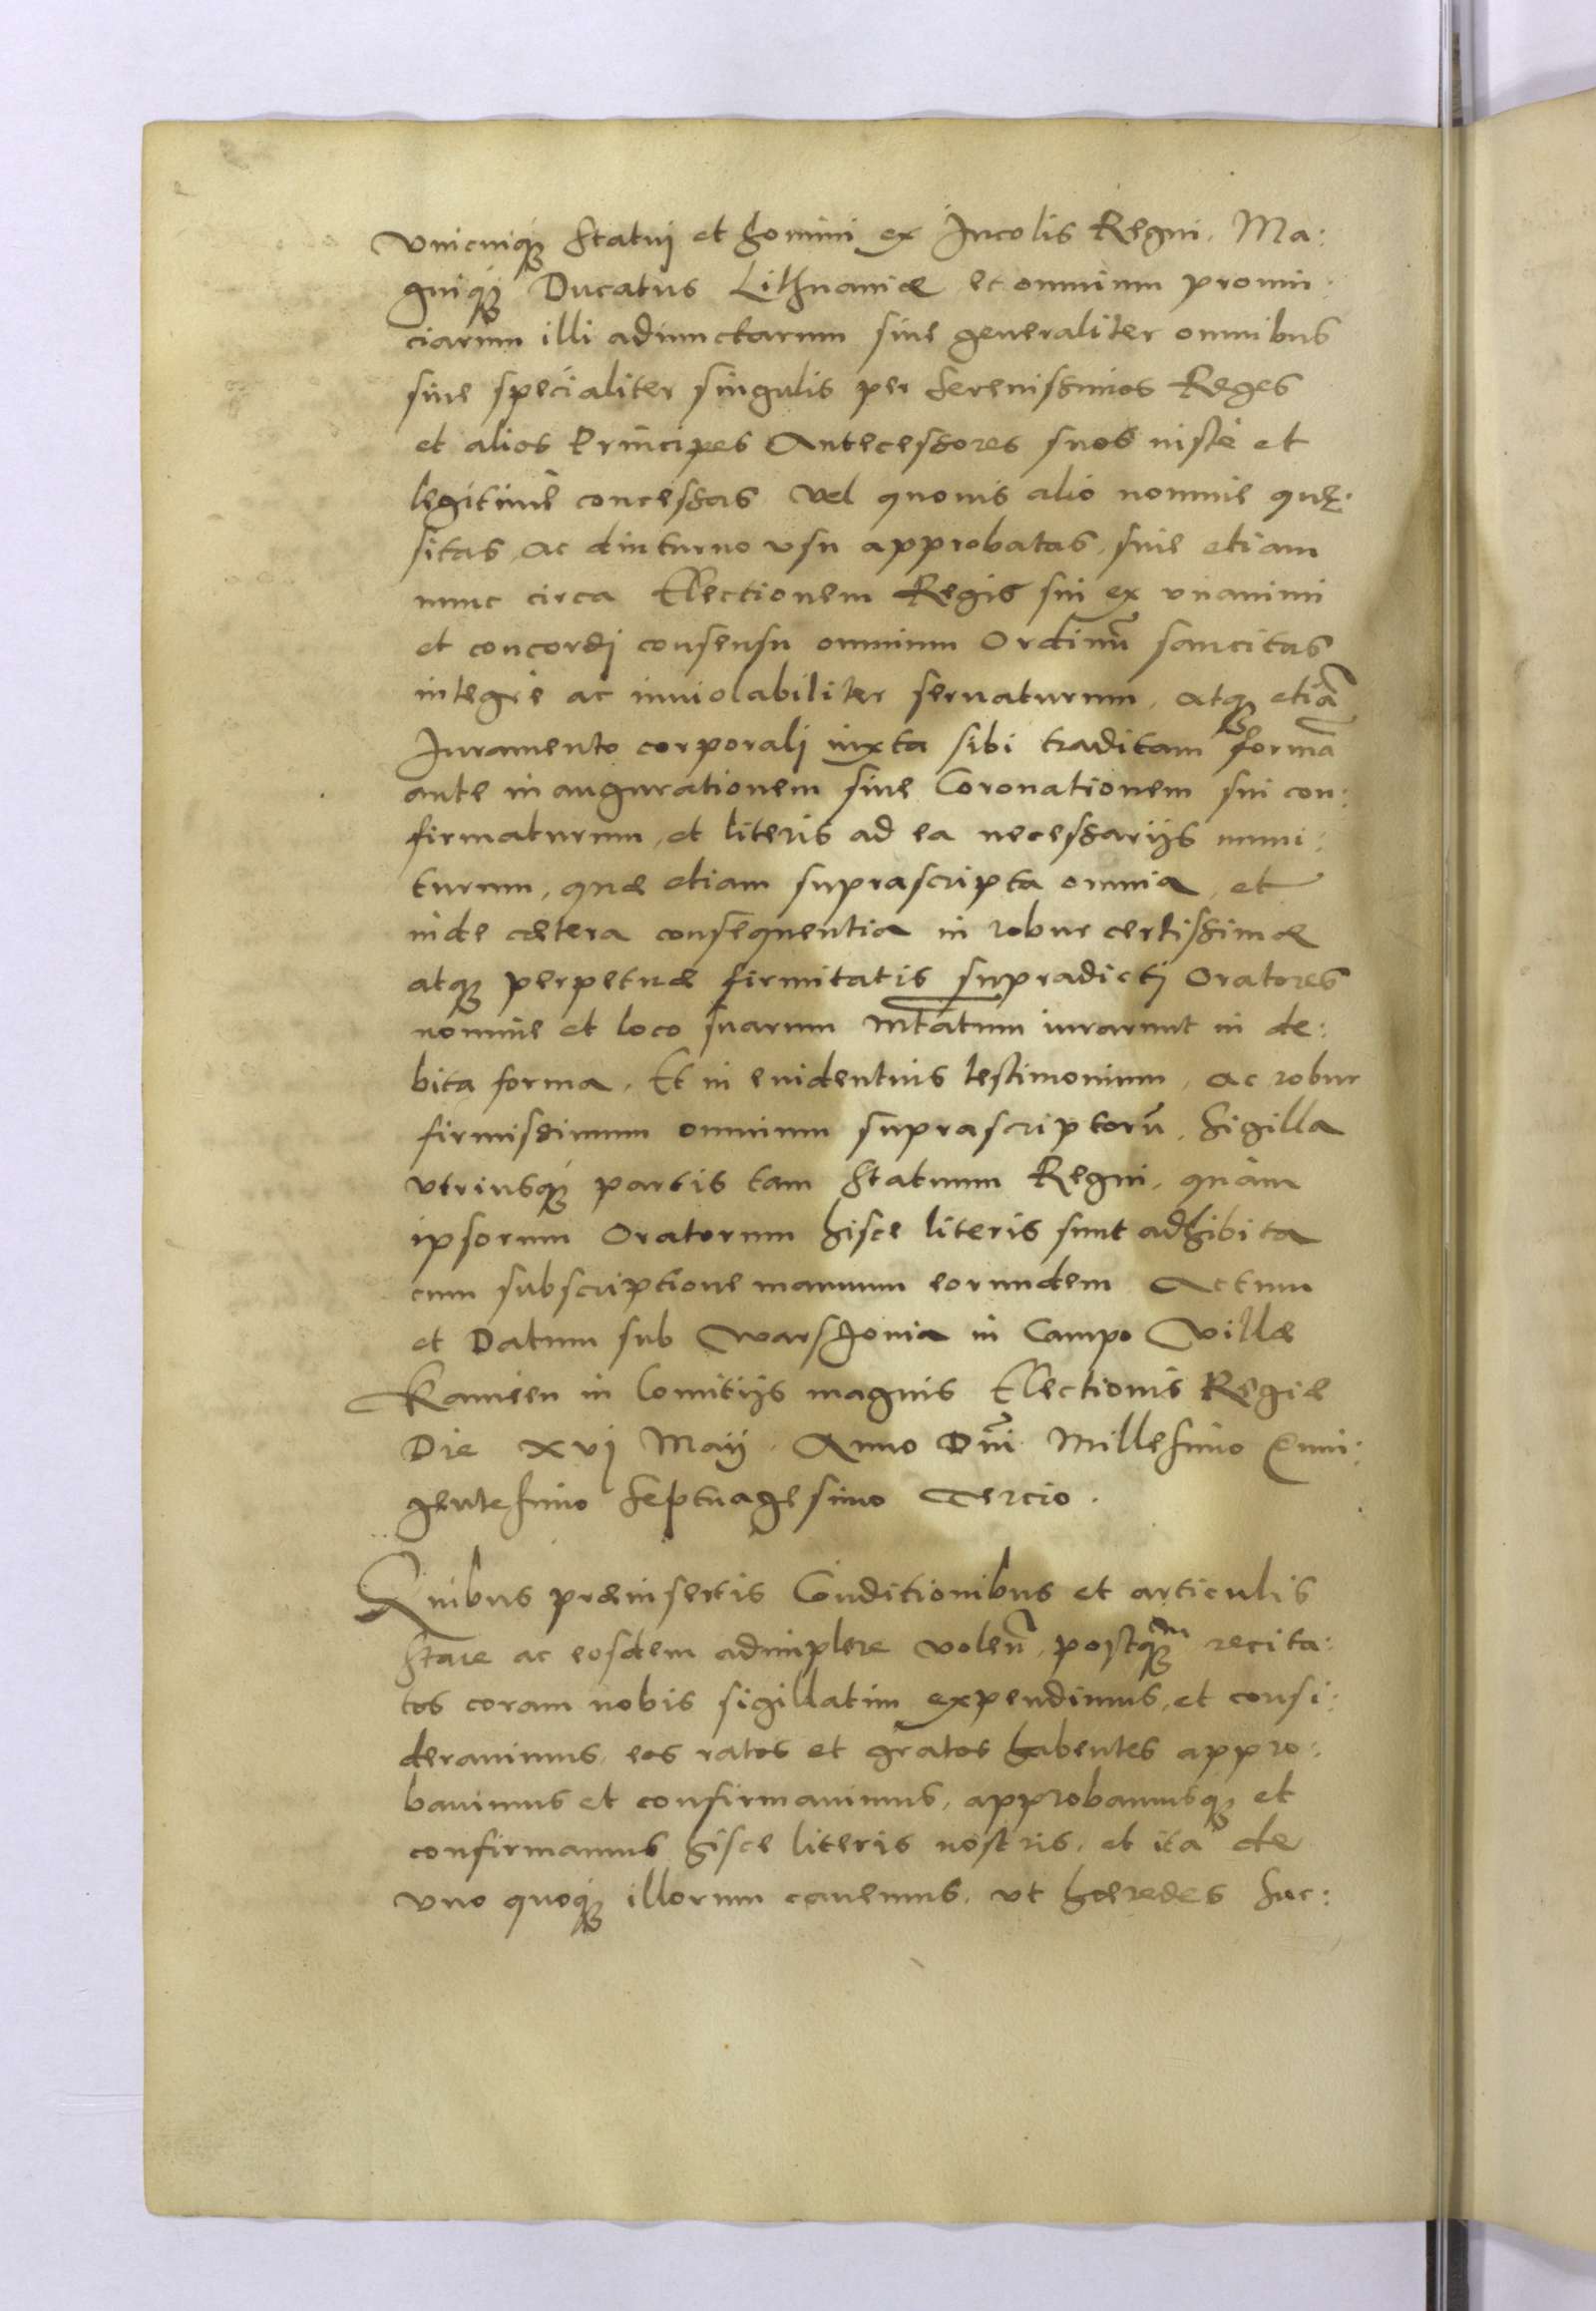 Vnicuiq́ꝫ Statuj et homini ex Incolis Regni, Ma:
gniq́ꝫ Ducatus Lithuaniæ et omnium prouin:
ciarum illi adiunctarum siue generaliter omnibus
siue specialiter singulis per Serenissimos Reges
et alios Principes Antecessores suos iustè et
legitimè concessas vel quouis alio nomine quę:
sitas, ac diuturno vsu approbatas, siue etiam
nunc circa Electionem Regis sui ex vnanimi
et concordj consensu omnium Ordinū sancitas
integrè ac inuiolabiliter seruaturum, atqꝫ etiā
Iuramento corporalj iuxta sibi traditam formā
ante inaugurationem siue Coronationem sui con:
firmaturum, et literis ad ea necessarijs muni:
turum, quæ etiam suprascripta omnia, et
inde cætera consequentia in robur certissimæ
atqꝫ perpetuæ firmitatis supradictj Oratores
nomine et loco suarum Mt̄atum iurarunt in de:
bita forma. Et in euidentius testimonium, ac robur
firmissimum omnium suprascriptorū, Sigilla
vtriusq́ꝫ partis tam Statuum Regni, quàm
ipsorum Oratorum hisce literis sunt adhibita
cum subscriptione manuum eorundem Actum
et Datum sub Warschouia in Campo Villæ
Kamień in Comitijs magnis Electionis Regiæ
Die xvj Maij. Anno Dn̄i Millesimo Quin:
gentesimo Septuagesimo Tercio.
Quibus præinsertis Conditionibus et articulis
Stare ac eosdem adimplere volen̄, postqꝫm recita:
tos coram nobis sigillatim expendimus, et consi:
derauimus, eos ratos et gratos habentes appro:
bauimus et confirmauimus, approbamusqꝫ et
confirmamus hisce literis nostris, et ita de
vno quoq́ꝫ illorum cauemus, vt hæredes suc: